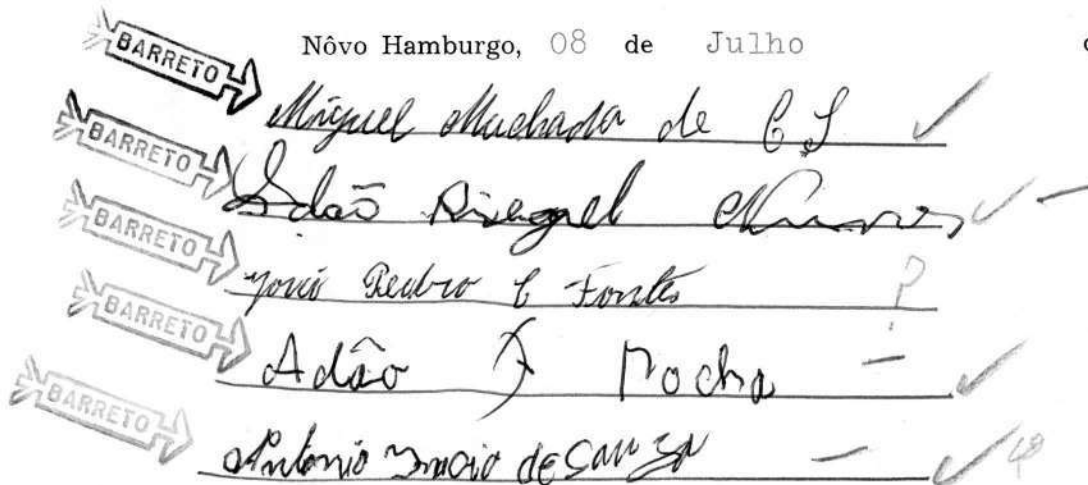 Nôvo Hamburgo, 08 de Julho
BARRETO
Miguel Machado de C S
BARRETO
Adão Nunes
BARRETO
Pedro C Fontes
?
BARRETO
Adão Rocha
BARRETO
Antonio Inacio de Souza